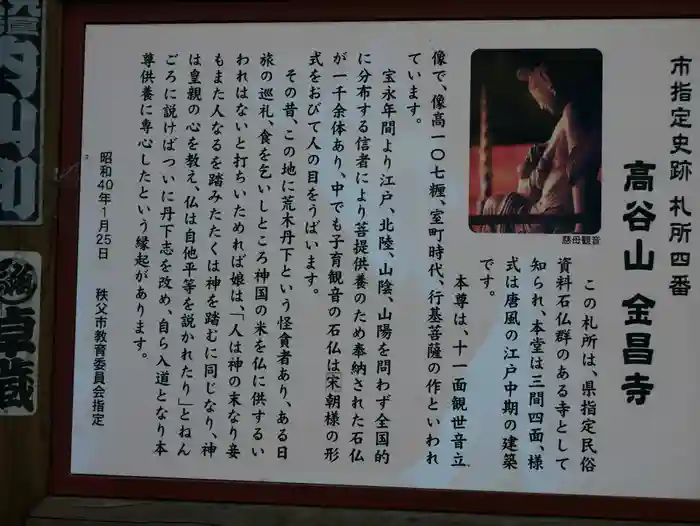 市指定史跡 札所四番
高谷山 金昌寺
この札所は、県指定民俗
資料石仏群のある寺として
知られ、本堂は三間四面、様
式は唐風の江戸中期の建築
です。
本尊は、十一面観世音立
像で、像高一〇七糎、室町時代、行基菩薩の作といわれ
ています。
宝永年間より江戸、北陸、山陰、山陽を問わず全国的
に分布する信者により菩提供養のため奉納された石仏
が一千余体あり、中でも子育観音の石仏は宋朝様の形
式をおびて人の目をうばいます。
その昔、この地に荒木丹下という怪貪者あり、ある日
旅の巡礼、食を乞いしところ神国の米を仏に供するい
われはないと打ちいためれば娘は、「人は神の末なり妾
もまた人なるを踏みたたくは神を踏むに同じなり、神
は皇親の心を教え、仏は自他平等を説かれたり」とねん
ごろに説けばついに丹下志を改め、自ら入道となり本
尊供養に専心したという縁起があります。
昭和40年1月25日 秩父市教育委員会指定
慈母観音
卓蔵